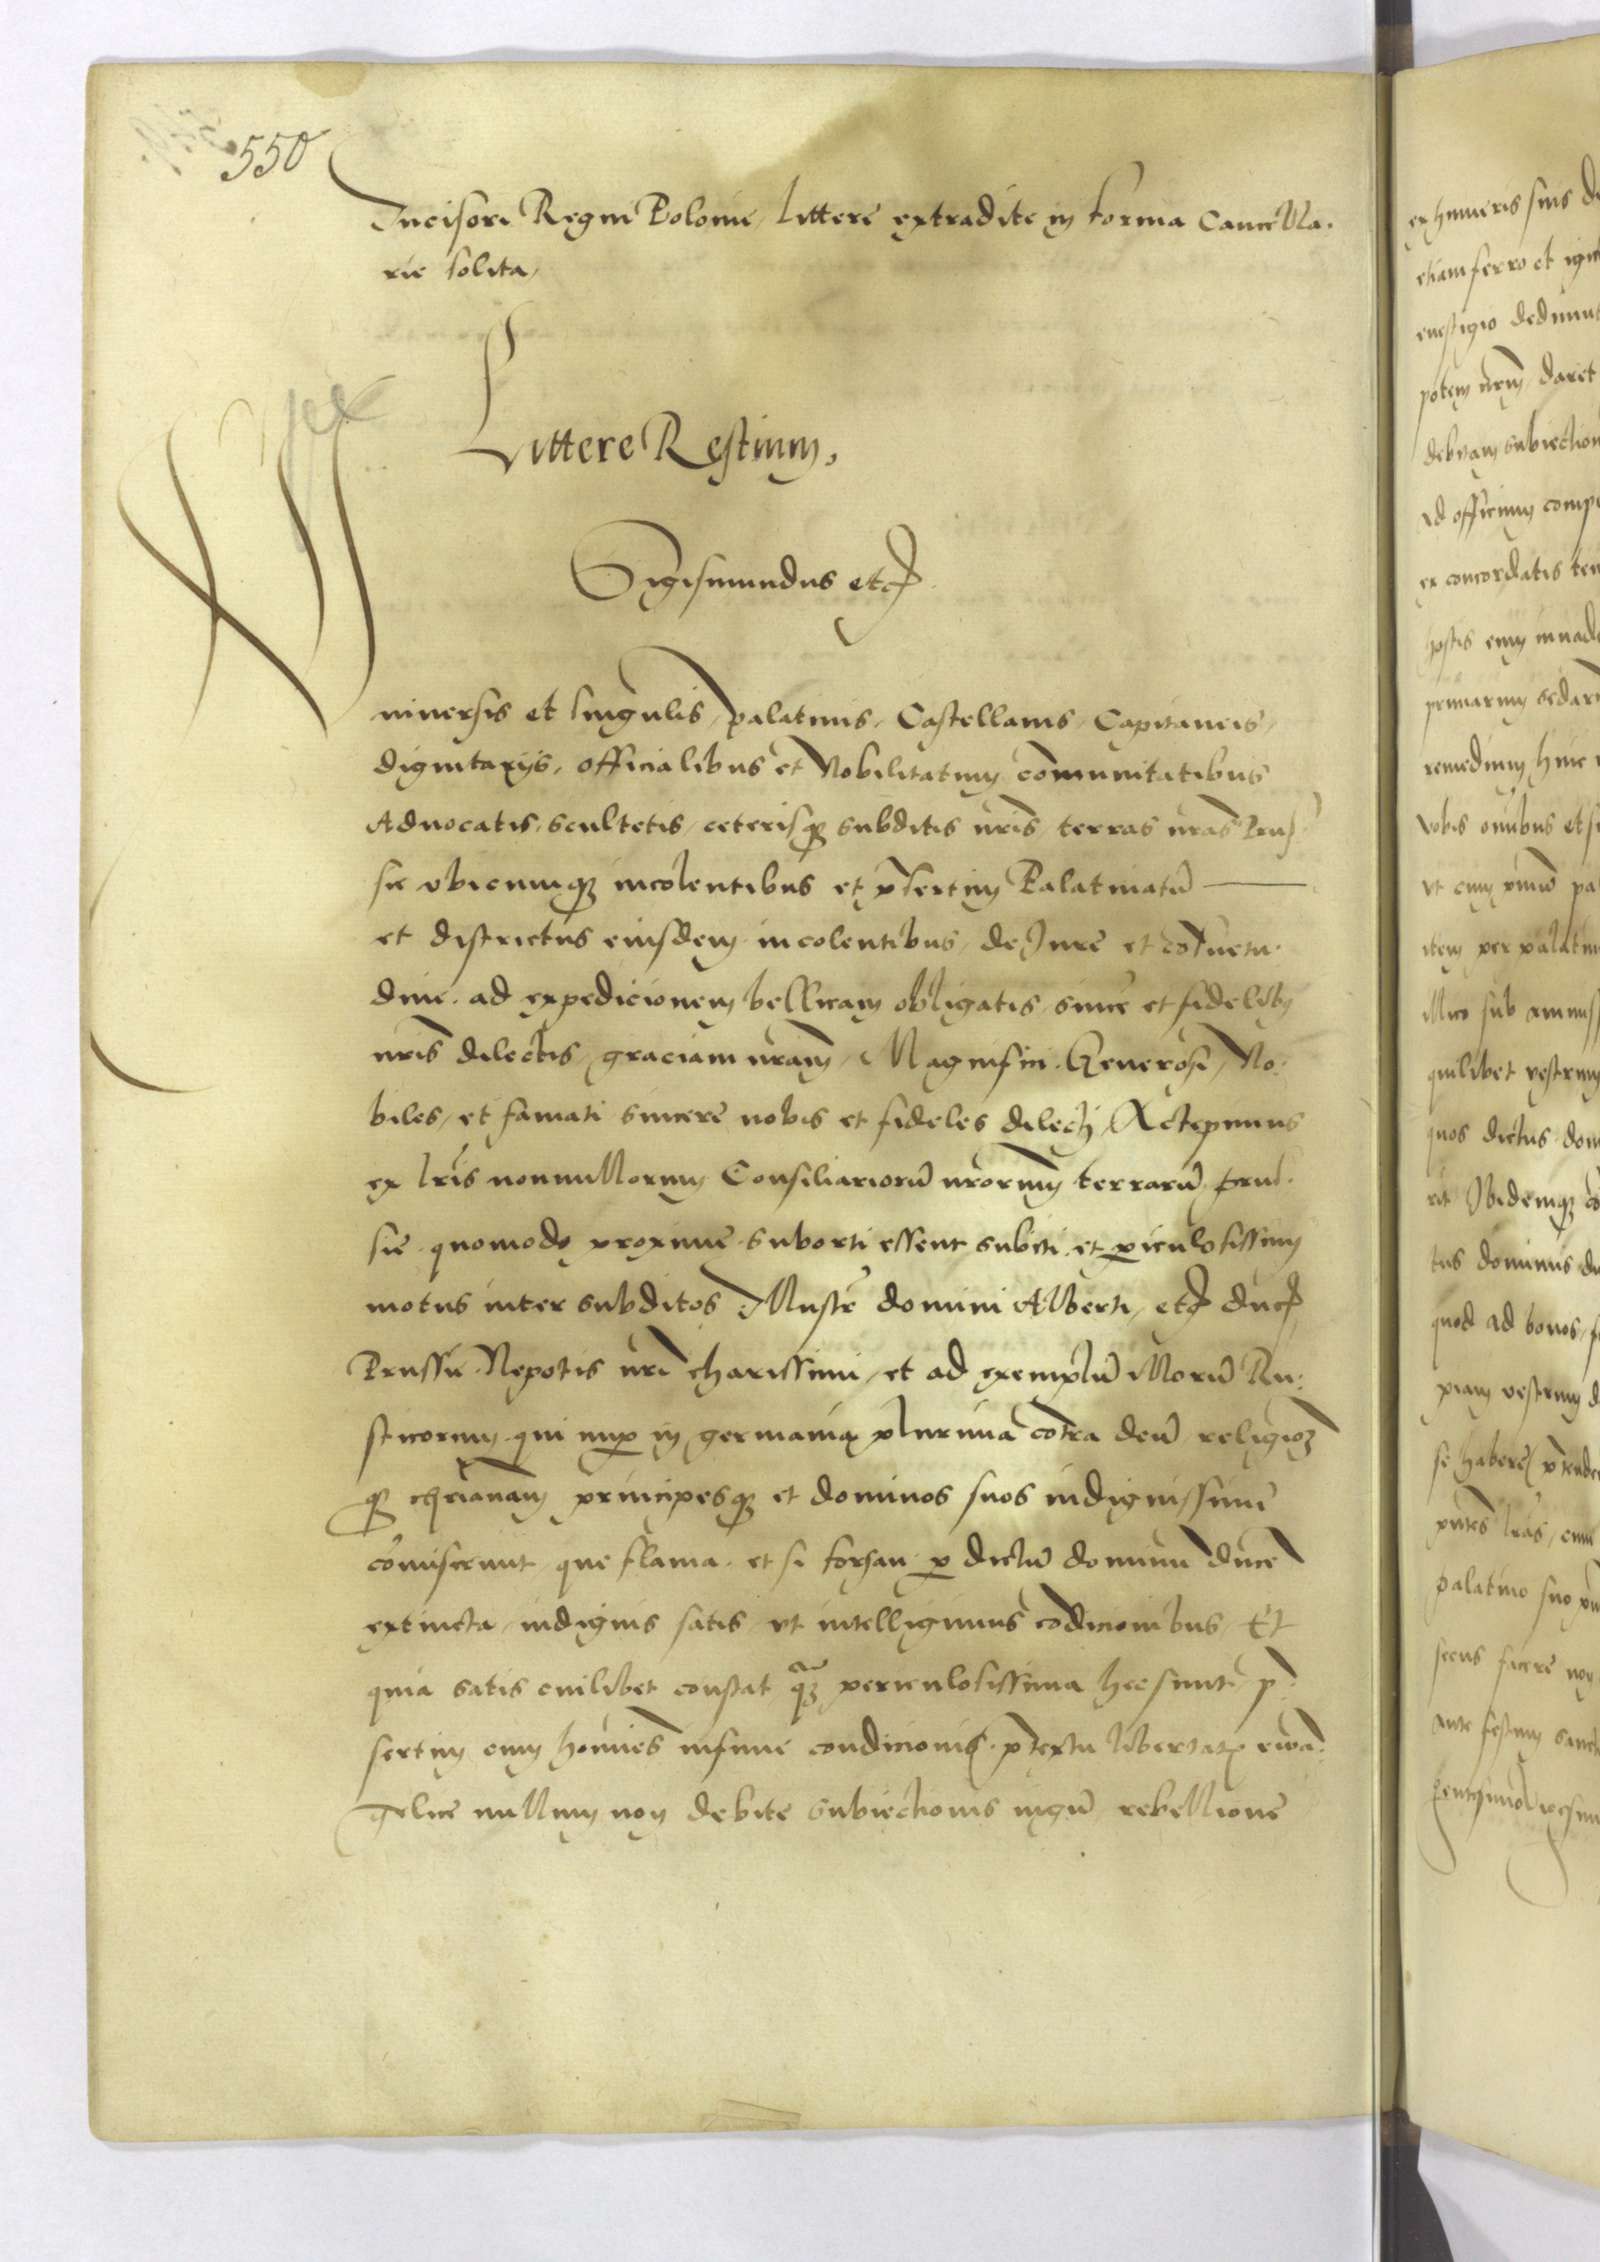 550
Incisori Regni Polonie, littere extradite in forma Cancella-
rie solita,
Littere Restium,
Sigismundus etc
Vniversis et singulis, palatinis, Castellanis, Capitaneis,
dignitariis, officialibus et Nobilitatum comunitatibus
Advocatis, scultetis, ceterisque subditis nris, terras nras Prus-
sie vbicumque incolentibus et presertim Palatinatu
et districtus eiusdem incolentibus, de Jure et cosuetu-
dine ad expedicionem bellicam obligatis, since et fidelibus
nris dilectis, graciam nram, Magnifici, Generosi, No-
biles, et famati sincere nobis et fideles dilecti, Accepimus
ex lris nonnullorum Consiliarioru nrorum terraru prus-
sie quomodo proxime suborti essent subiti et periculosissimi
motus inter subditos Illustr domini Alberti, etc ducis
Prussie Nepotis nri charissimi, et ad exemplu illoru Ru-
sticorum qui nuper in germania plurima cotra deu religione
que chrianam principesque et dominos suos indignissime
comiserunt, que flama et si forsan per dictu dominu duce
extincta, indignis satis, vt intelligimus codicionibus, Et
quia satis cuilibet constat quam periculosissima hec sunt, pre-
sertim cum homines infime condicionis pretextu libertatis ewa-
gelice nullum non debite subiectionis iugu rebellione
ex humeris suis
etiam ferro et
evestigio
potem nrum daret
debitam subiection
ad officium
ex concordatis
hostis eum
remedium huic
vobis omibus et
vt cum primu
item per palatin
illico sub
quilibet vestrum
quos dictus dom
rit Ibidemque
tus dominus
quod ad bonos
piam vestrum
se habere
pntes lras, cum
palatino suo
secus facere non
ante festum sanct